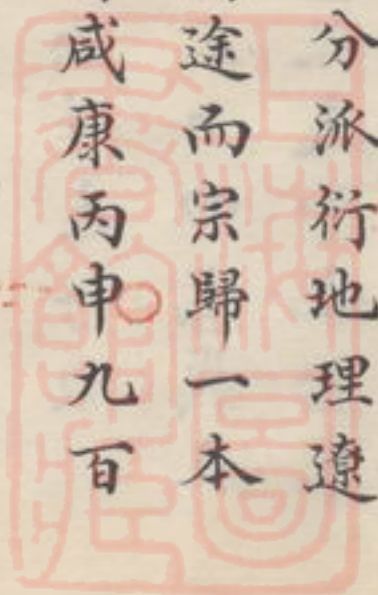 分派衍地理遼
途而宗歸一本
咸康丙申九百